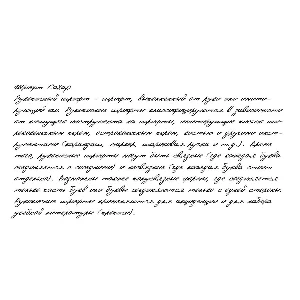 Шрифт Сахар
Рукописный шрифт - шрифт, выполненный от руки или имити-
рующий им. Рукописные шрифты классифицируются в зависимости
от пишущего инструмента на шрифты, имитирующие письмо ши-
роконечным пером, остроконечным пером, кистью и другими инст-
рументами (карандаш, маркер, шариковая ручка и т.д.). Кроме
того, рукописные шрифты могут быть связные (где каждая буква
соединяется с соседними) и несвязные (где каждая буква стоит
отдельно). Возможны также полусвязные шрифты, где соединяется
только часть букв или буквы соединяются только с одной стороны.
Рукописные шрифты применяются для акциденции и для набора
учебной литературы (прописи).